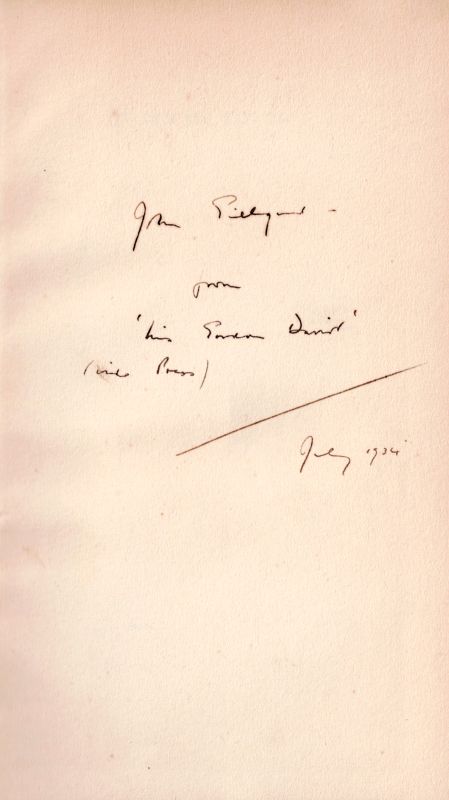 John Gielgud –
from
'his Gordon Daviot'
(vide Press)
July 1934